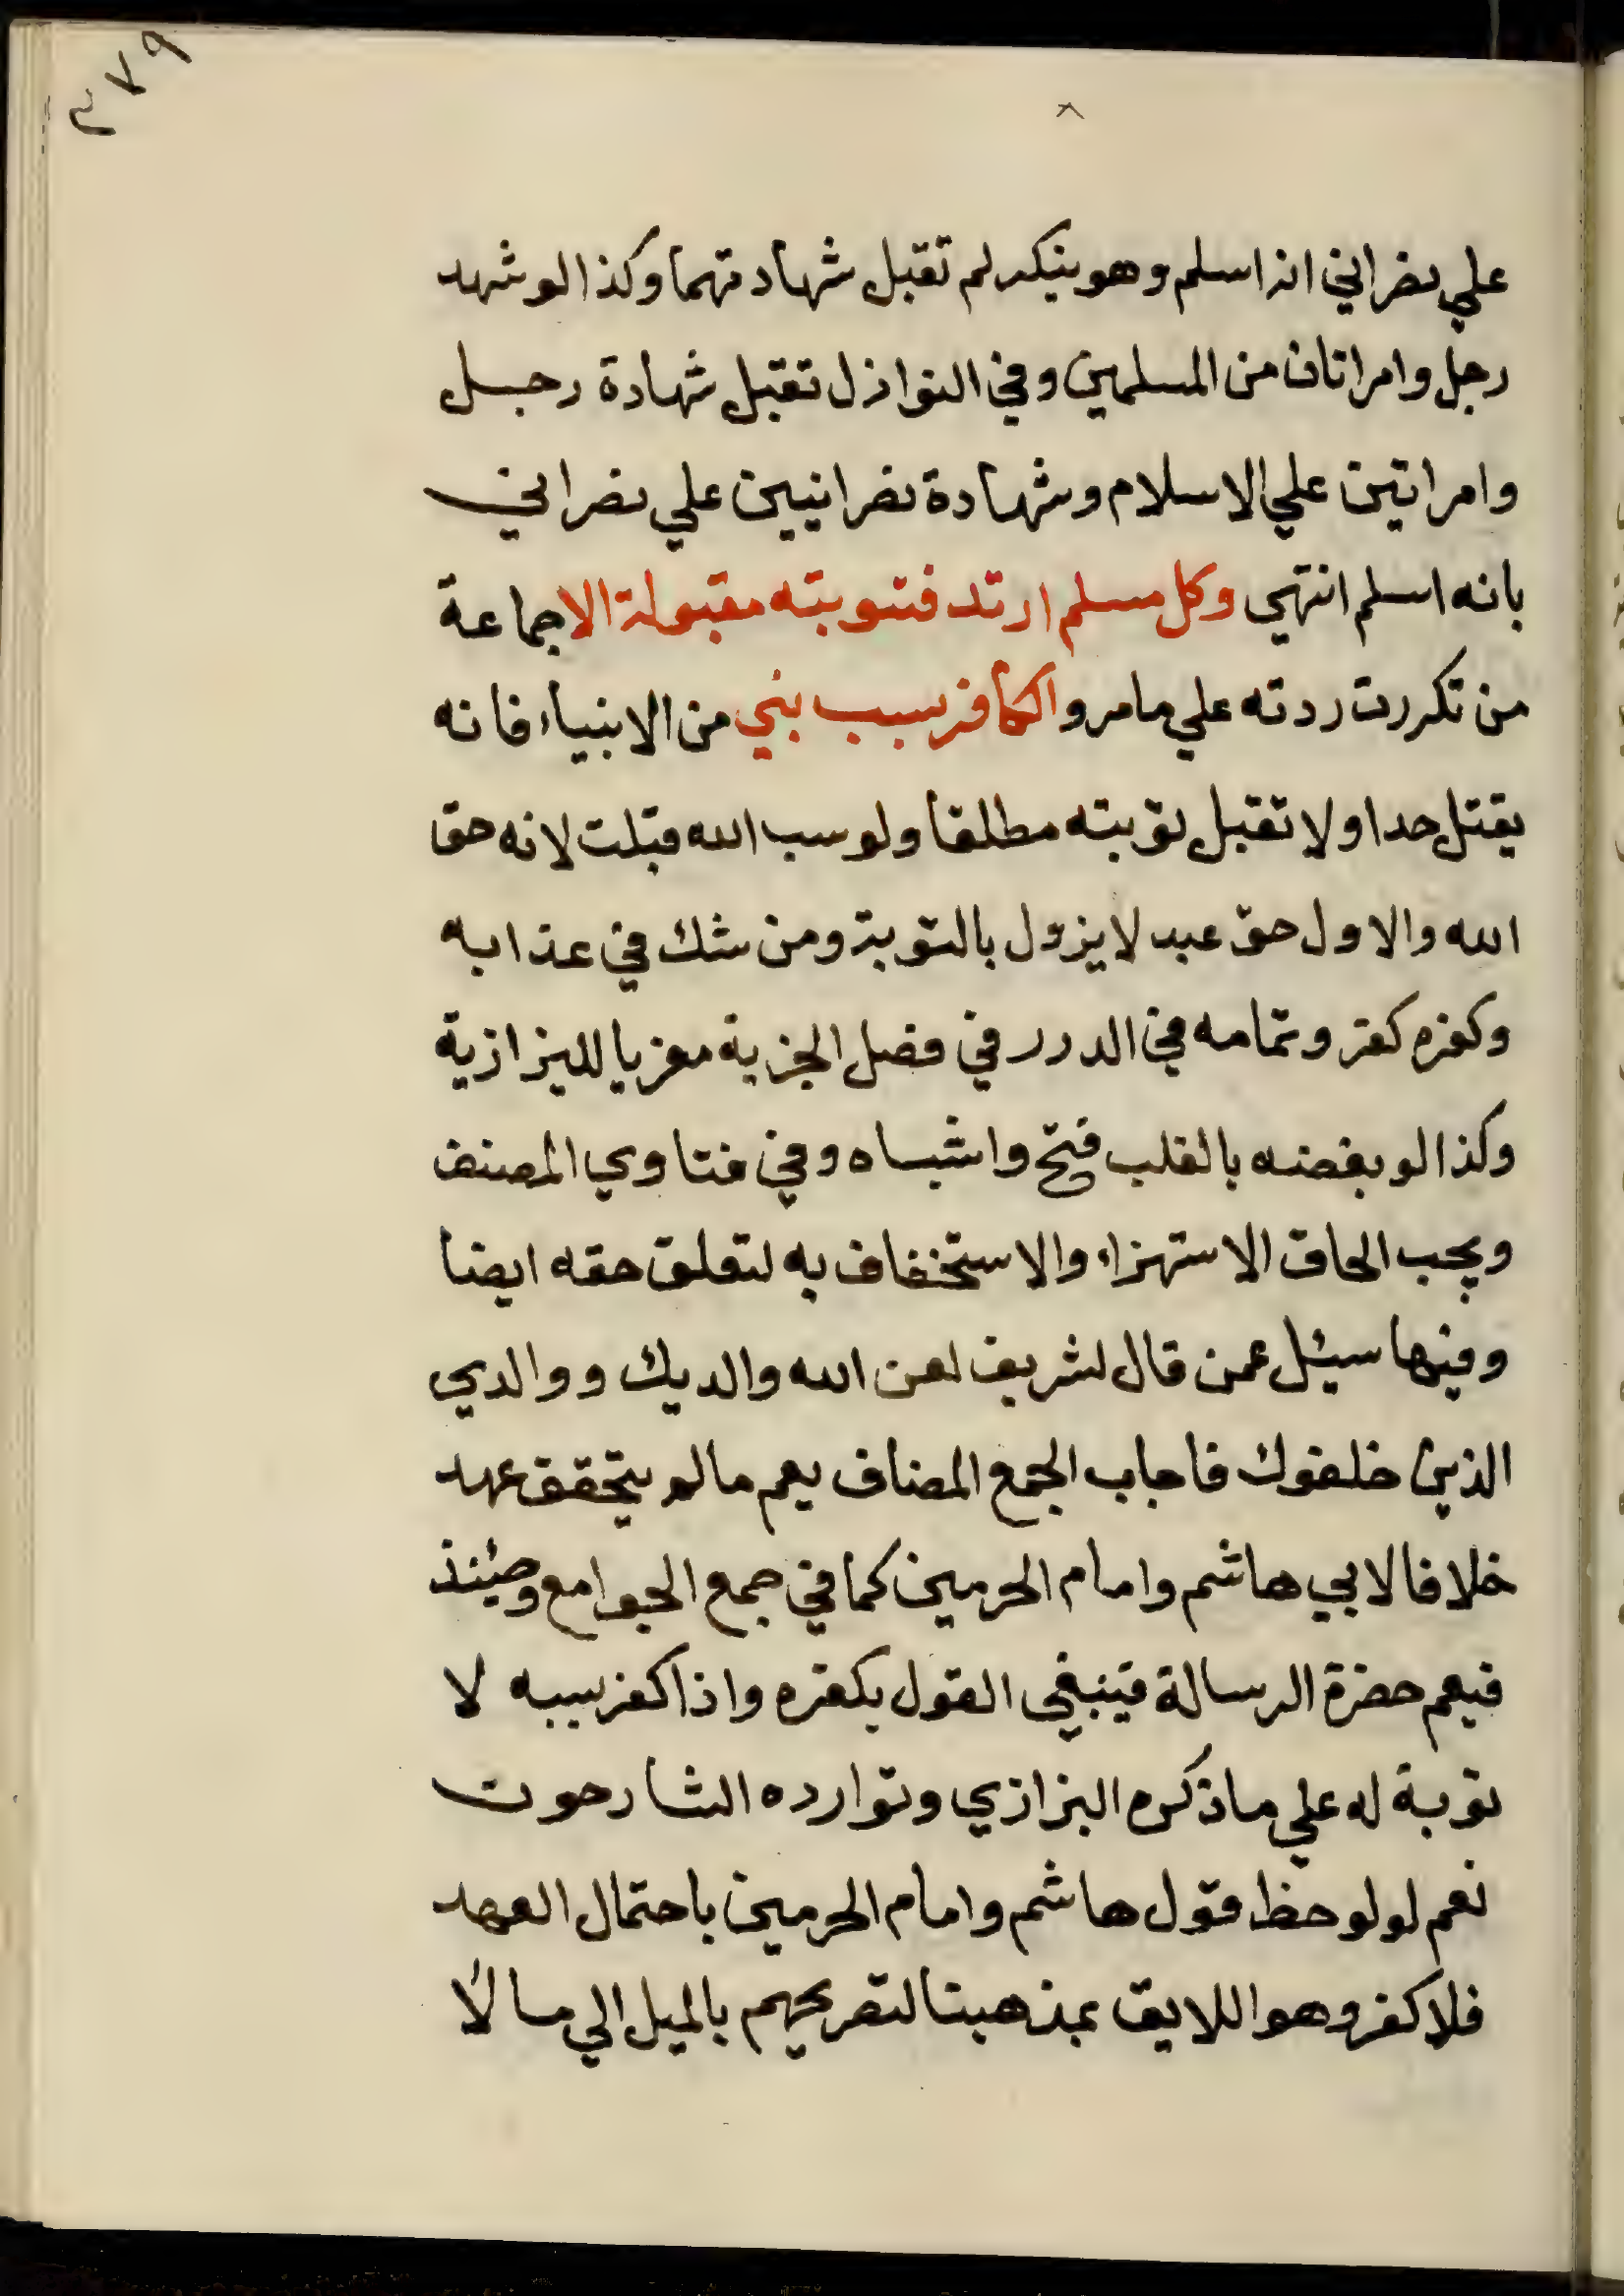 ٣٧٩
٨
علي نصراني انه اسلم وهو ينكر لم تقبل شهادتهما وكذا لو شهد
رجل وامراتان من المسلمين وفي النوازل تقبل شهادة رجل
وامراتين علي الاسلام وشهادة نصرانيين علي نصراني
بانه اسلم انتهي وكل مسلم ارتد فتوبته مقبولة الا جماعة
من تكررت ردته علي مامر والكافر بسبب نبي من الانبياء فانه
يقتل حدا ولا تقبل توبته مطلقا ولو سب الله قبلت لانه حق
الله والاول حق عبد لا يزول بالتوبة ومن شك في عذابه
وكفره كفر وتمامه في الدرر في فصل الجزية معزيا للبزازية
وكذا لو بغضه بالقلب فتح واشباه وفي فتاوي المصنف
ويجب الحاق الاستهزاء والاستخفاف به لتعلق حقه ايضا
وفيها سيئل عمن قال لشريف لعن الله والديك ووالدي
الذين خلفوك فاجاب الجمع المضاف يعم مالم يتحقق عهد
خلافا لابي هاشم وامام الحرمين كما في جمع الجوامع وحينئذ
فيعم حضرة الرسالة فينبغي القول بكفره واذا كفر بسبه لا
توبة له علي ماذكره البزازي وتوارده الشارحون
نعم لو لوحظ قول هاشم وامام الحرمين باحتمال العهد
فلا كفر وهو اللايق بمذهبنا لتصريحهم بالميل الي مالا